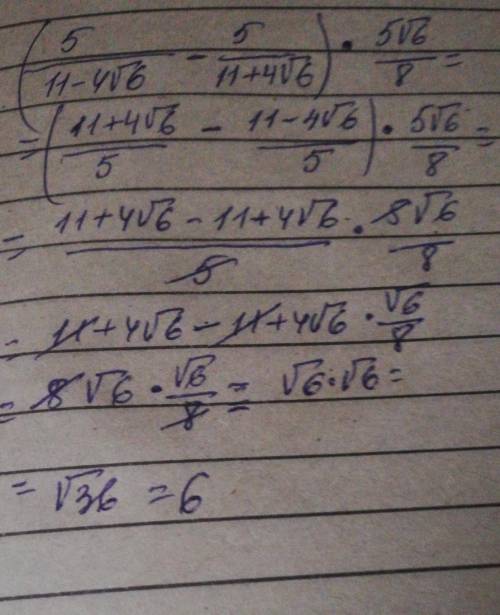 (5/(11-4√6) - 5/(11+4√6)) · 5√6/8 =
= ((11+4√6)/5 - (11-4√6)/5) · 5√6/8 =
= (11+4√6-11+4√6)/5 · 5√6/8
= 11+4√6-11+4√6 · √6/8
= 8√6 · √6/8 = √6·√6=
= √36 = 6